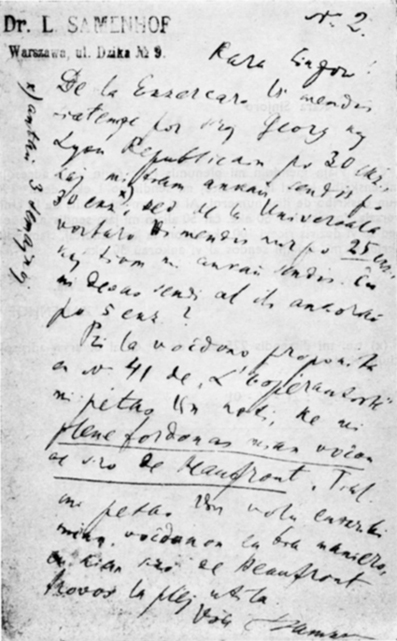 N. 2.
Dr. L. SAMENHOF
Warszawa, ul. Dzika № 9.
Kara Sinjoro!
De la Ekzercaro Vi mendis
por Georg kaj
Lyon Republicain po 30 ekz.,
kaj mi tiam ankaŭ sendis po
30 ekz. sed de la Universala
vortaro Vi mendis nur po 25 ekz.
kaj tiom mi ankaŭ sendis. Ĉu
mi devas sendi al ili ankoraŭ
po 5 ekz.?
Pri la voĉdono proponita
en № 41 de „L'Esperantiste"
mi petas Vin noti, ke mi
plene fordonas mian voĉon
al siro de Beaufront. Tial
mi petas Vin volu enskribi
mian voĉdonon en tia maniero,
kian siro de Beaufront
trovos la plej utila.
Via
x) antaŭ 3 semajnoj